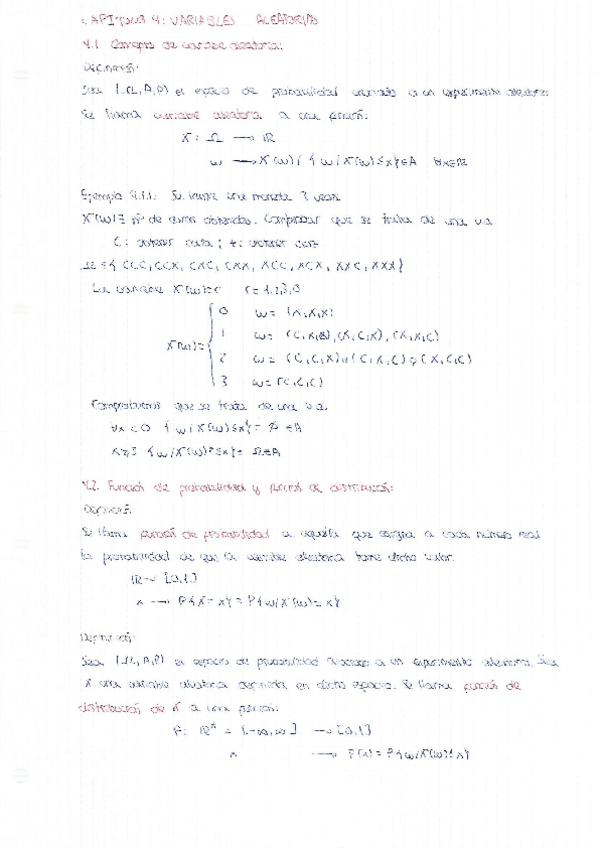 CAPITULO 4: VARIABLES ALEATORIAS
4.1. Concepto de variable aleatoria:
Definición:
Sea (Ω, A, P) el espacio de probabilidad asociado a un experimento aleatorio.
Se llama variable aleatoria a una función:
X: Ω → IR
w → X(w) / { w / X(w) ≤ x } ∈ A ∀x∈IR
Ejemplo 4.1.1: Se lanza una moneda 3 veces
X(w) ≡ nº de caras obtenidas. Comprobar que se trata de una v.a
C: obtener cara; +: obtener cruz
Ω = { CCC, CCX, CXC, CXX, XCC, XCX, XXC, XXX }
La variable X(w)=r r=1,2,3,0
X(w) =
0 w = (X,X,X)
1 w = (C,X,X), (X,C,X), (X,X,C)
2 w = (C,C,X) ó (C,X,C) ó (X,C,C)
3 w = (C,C,C)
Comprobamos que se trata de una v.a.
∀x<0 { w / X(w) ≤ x } = Ø ∈ A
x≥3 { w / X(w) ≤ x } = Ω ∈ A
4.2. Función de probabilidad y función de distribución:
Definición:
Se llama función de probabilidad a aquella que asigna a cada número real
la probabilidad de que la variable aleatoria tome dicho valor.
IR → [0,1]
x → P{X = x} = P{w / X(w) = x}
Definición:
Sea (Ω, A, P) el espacio de probabilidad asociado a un experimento aleatorio. Sea
X una variable aleatoria definida en dicho espacio. Se llama función de
distribución de X a una función:
F: IR* = [-∞, ∞] → [0,1]
x → F(x) = P{w / X(w) ≤ x}